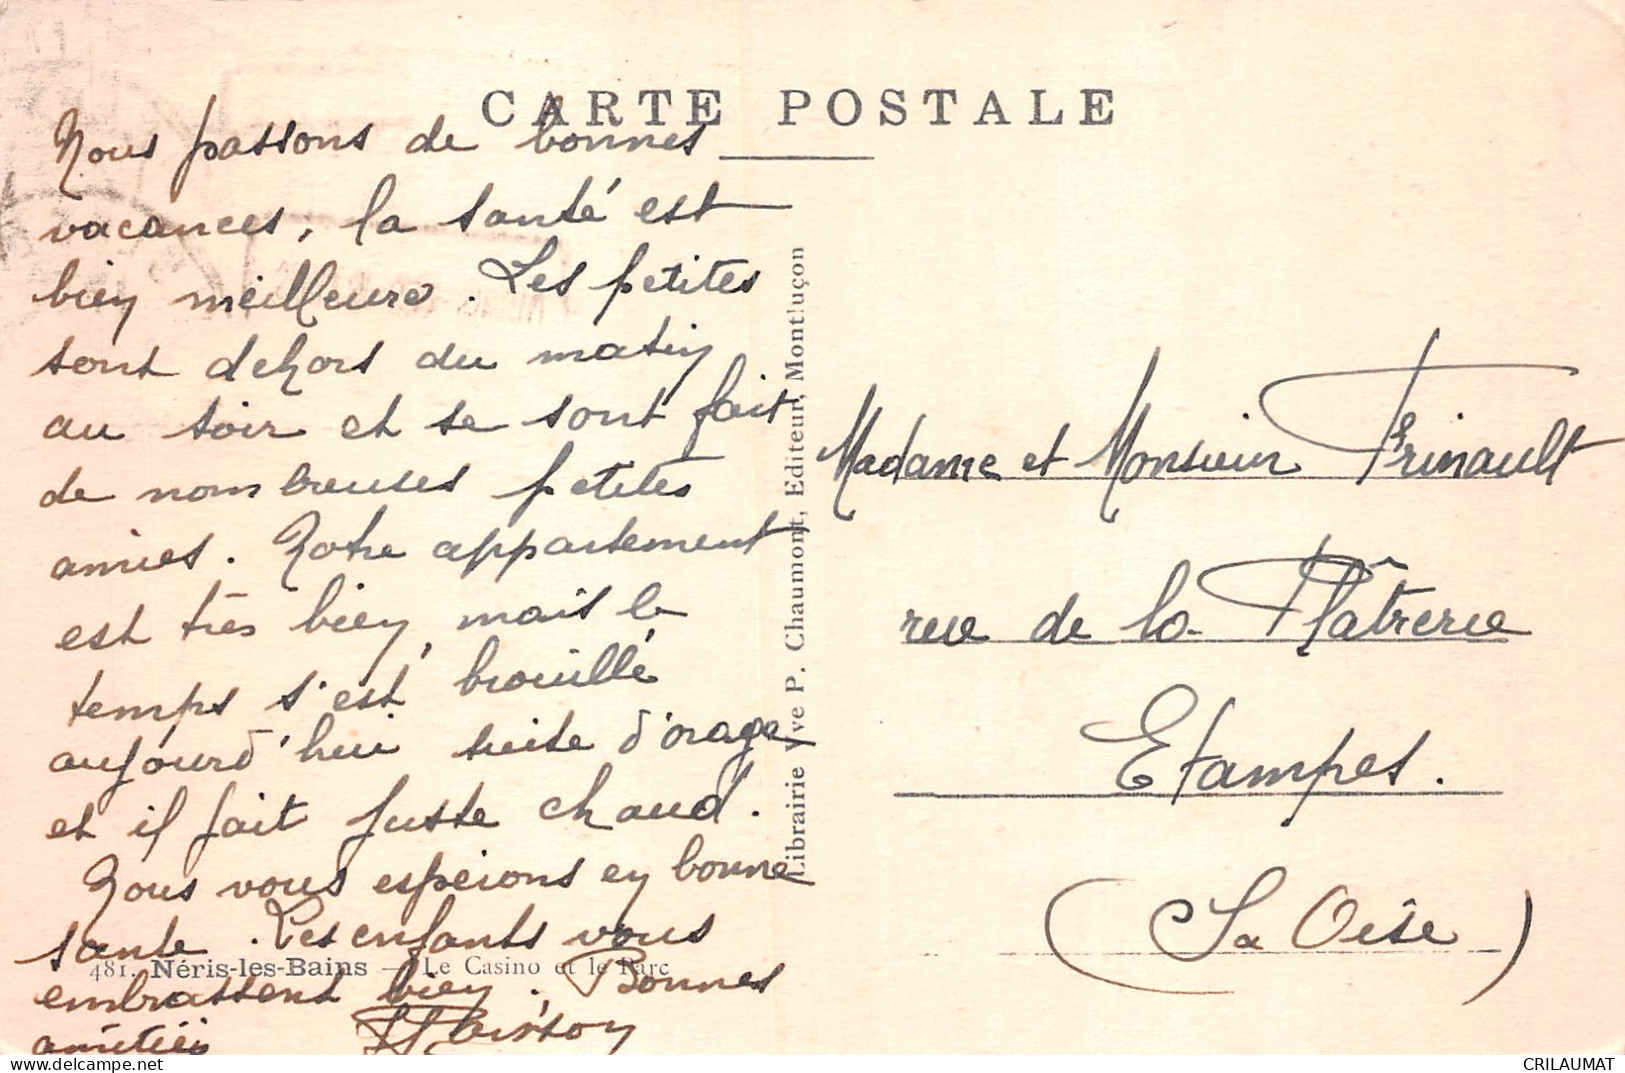 CARTE POSTALE
Nous passons de bonnes
vacances, la santé est
bien meilleure. Les petites
sont dehors du matin
au soir et se sont fait
de nombreuses petites
amies. Notre appartement
est très bien, mais le
temps s'est brouillé
aujourd'hui suite d'orage
et il fait juste chaud.
Nous vous espérons en bonne
santé. Les enfants vous
embrassent bien. Bonnes
amitiés
481. Néris-les-Bains — Le Casino et le Parc
Librairie Vve P. Chaumont, Editeur, Montluçon
Madame et Monsieur Frinault
rue de la Plâtrerie
Etampes.
(Sa Oise)
CRILAUMAT